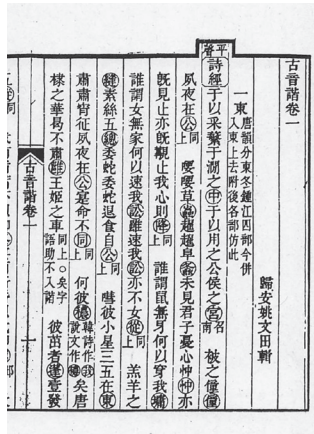 古音諧卷一
歸安姚文田輯
一東唐韻分東冬鍾江四部今併入東上去附後各部仿此
平聲
詩經于以采蘩于澗之中于以用之公侯之宮召南 被之僮僮
夙夜在公同上 喓喓草蟲趯趯阜螽未見君子憂心忡忡亦
既見止亦既覯止我心則降同上 誰謂鼠無牙何以穿我墉
誰謂女無家何以速我訟雖速我訟亦不女從同上 羔羊之
縫素絲五總委蛇委蛇退食自公同上 嘒彼小星三五在東
肅肅宵征夙夜在公寔命不同同上 何彼襛韓詩作 說文作 矣唐
棣之華曷不肅雝王姬之車同上○矣字語助不入諧 彼茁者蓬壹發
古音諧卷一